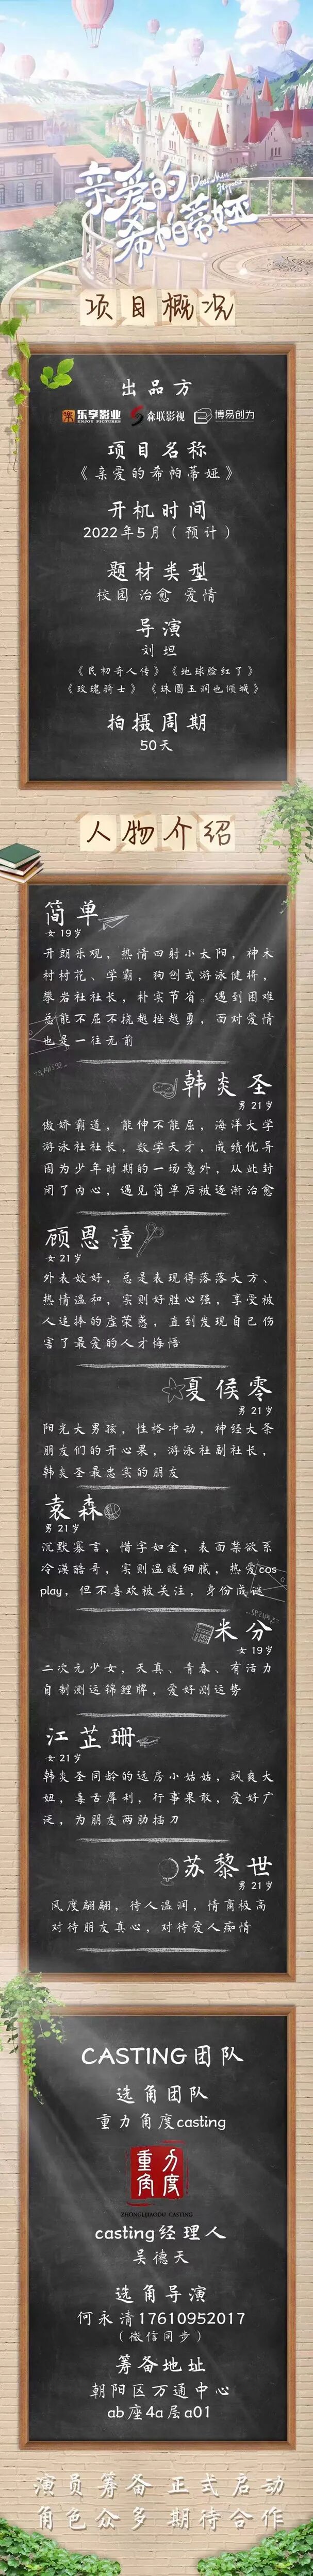 亲爱的
希帕蒂娅
项目概况
出品方
乐享影业 ENJOY PICTURES 森联影视 博易创为
项目名称
《亲爱的希帕蒂娅》
开机时间
2022年5月（预计）
题材类型
校园 治愈 爱情
导演
刘坦
《民初奇人传》《地球脸红了》
《玫瑰骑士》《珠圆玉润也倾城》
拍摄周期
50天
人物介绍
简单
女 19岁
开朗乐观，热情四射小太阳，神木
村村花、学霸，狗刨式游泳健将，
攀岩社社长，朴实节省。遇到困难
总能不屈不挠越挫越勇，面对爱情
也是一往无前
韩炎圣
男 21岁
傲娇霸道，能伸不能屈，海洋大学
游泳社社长，数学天才，成绩优异
因为少年时期的一场意外，从此封
闭了内心，遇见简单后被逐渐治愈
顾恩潼
女 21岁
外表姣好，总是表现得落落大方、
热情温和，实则好胜心强，享受被
人追捧的虚荣感，直到发现自己伤
害了最爱的人才悔悟
夏侯零
男 21岁
阳光大男孩，性格冲动，神经大条
朋友们的开心果，游泳社副社长，
韩炎圣最忠实的朋友
袁森
男 21岁
沉默寡言，惜字如金，表面禁欲系
冷漠酷哥，实则温暖细腻，热爱cos
play，但不喜欢被关注，身份成谜
米分
女 19岁
二次元少女，天真、青春、有活力
自制测运锦鲤牌，爱好测运势
江芷珊
女 21岁
韩炎圣同龄的远房小姑姑，飒爽大
妞，毒舌犀利，行事果敢，爱好广
泛，为朋友两肋插刀
苏黎世
男 21岁
风度翩翩，待人温润，情商极高
对待朋友真心，对待爱人痴情
CASTING团队
选角团队
重力角度casting
重力角度
ZHONGLIJIAODU CASTING
casting经理人
吴德天
选角导演
何永清17610952017
（微信同步）
筹备地址
朝阳区万通中心
ab座4a层a01
演员筹备 正式启动
角色众多 期待合作